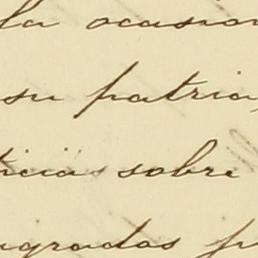 la ocasion
su patria,
ticias sobre
agradas p